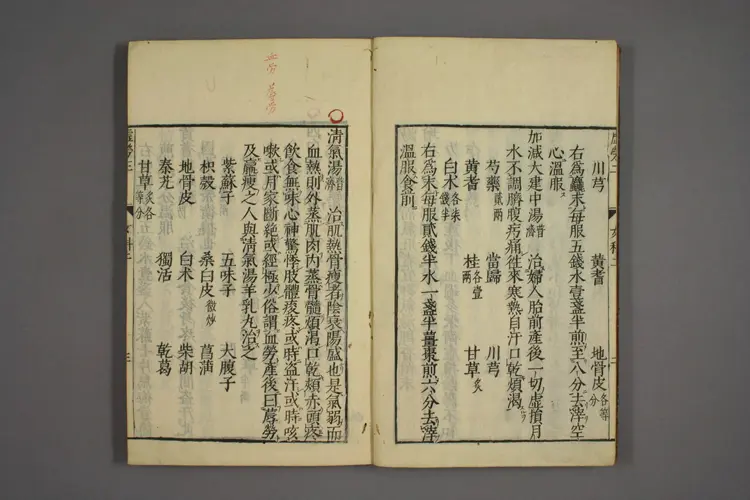 川芎 黃耆 地骨皮各等分
右爲麤末每服五錢水壹盞半煎至八分去滓空
心溫服
加減大建中湯 治婦人胎前產後一切虛損月
水不調臍腹疠痛往來寒熱自汗口乾煩渴
芍藥貳兩 當歸 川芎
黃耆 桂各壹兩 甘草炙
白朮各柒錢半
右爲末每服貳錢半水一盞半薑棗煎六分去滓
溫服食前
清氣湯 治肌熱骨瘦者陰衰陽盛也是氣弱而
血熱則外蒸肌肉內蒸骨髓煩渴口乾頰赤頭疼
飲食無味心神驚悸肢體痠疼或時盜汗或時咳
嗽或月家斷絶或經極少俗謂血勞產後曰蓐勞
及羸瘦之人與清氣湯羊乳丸治之
紫蘇子 五味子 大腹子
枳殼 桑白皮微炒 菖蒲
地骨皮 白朮 柴胡
秦艽 獨活 乾葛
甘草炙各等分